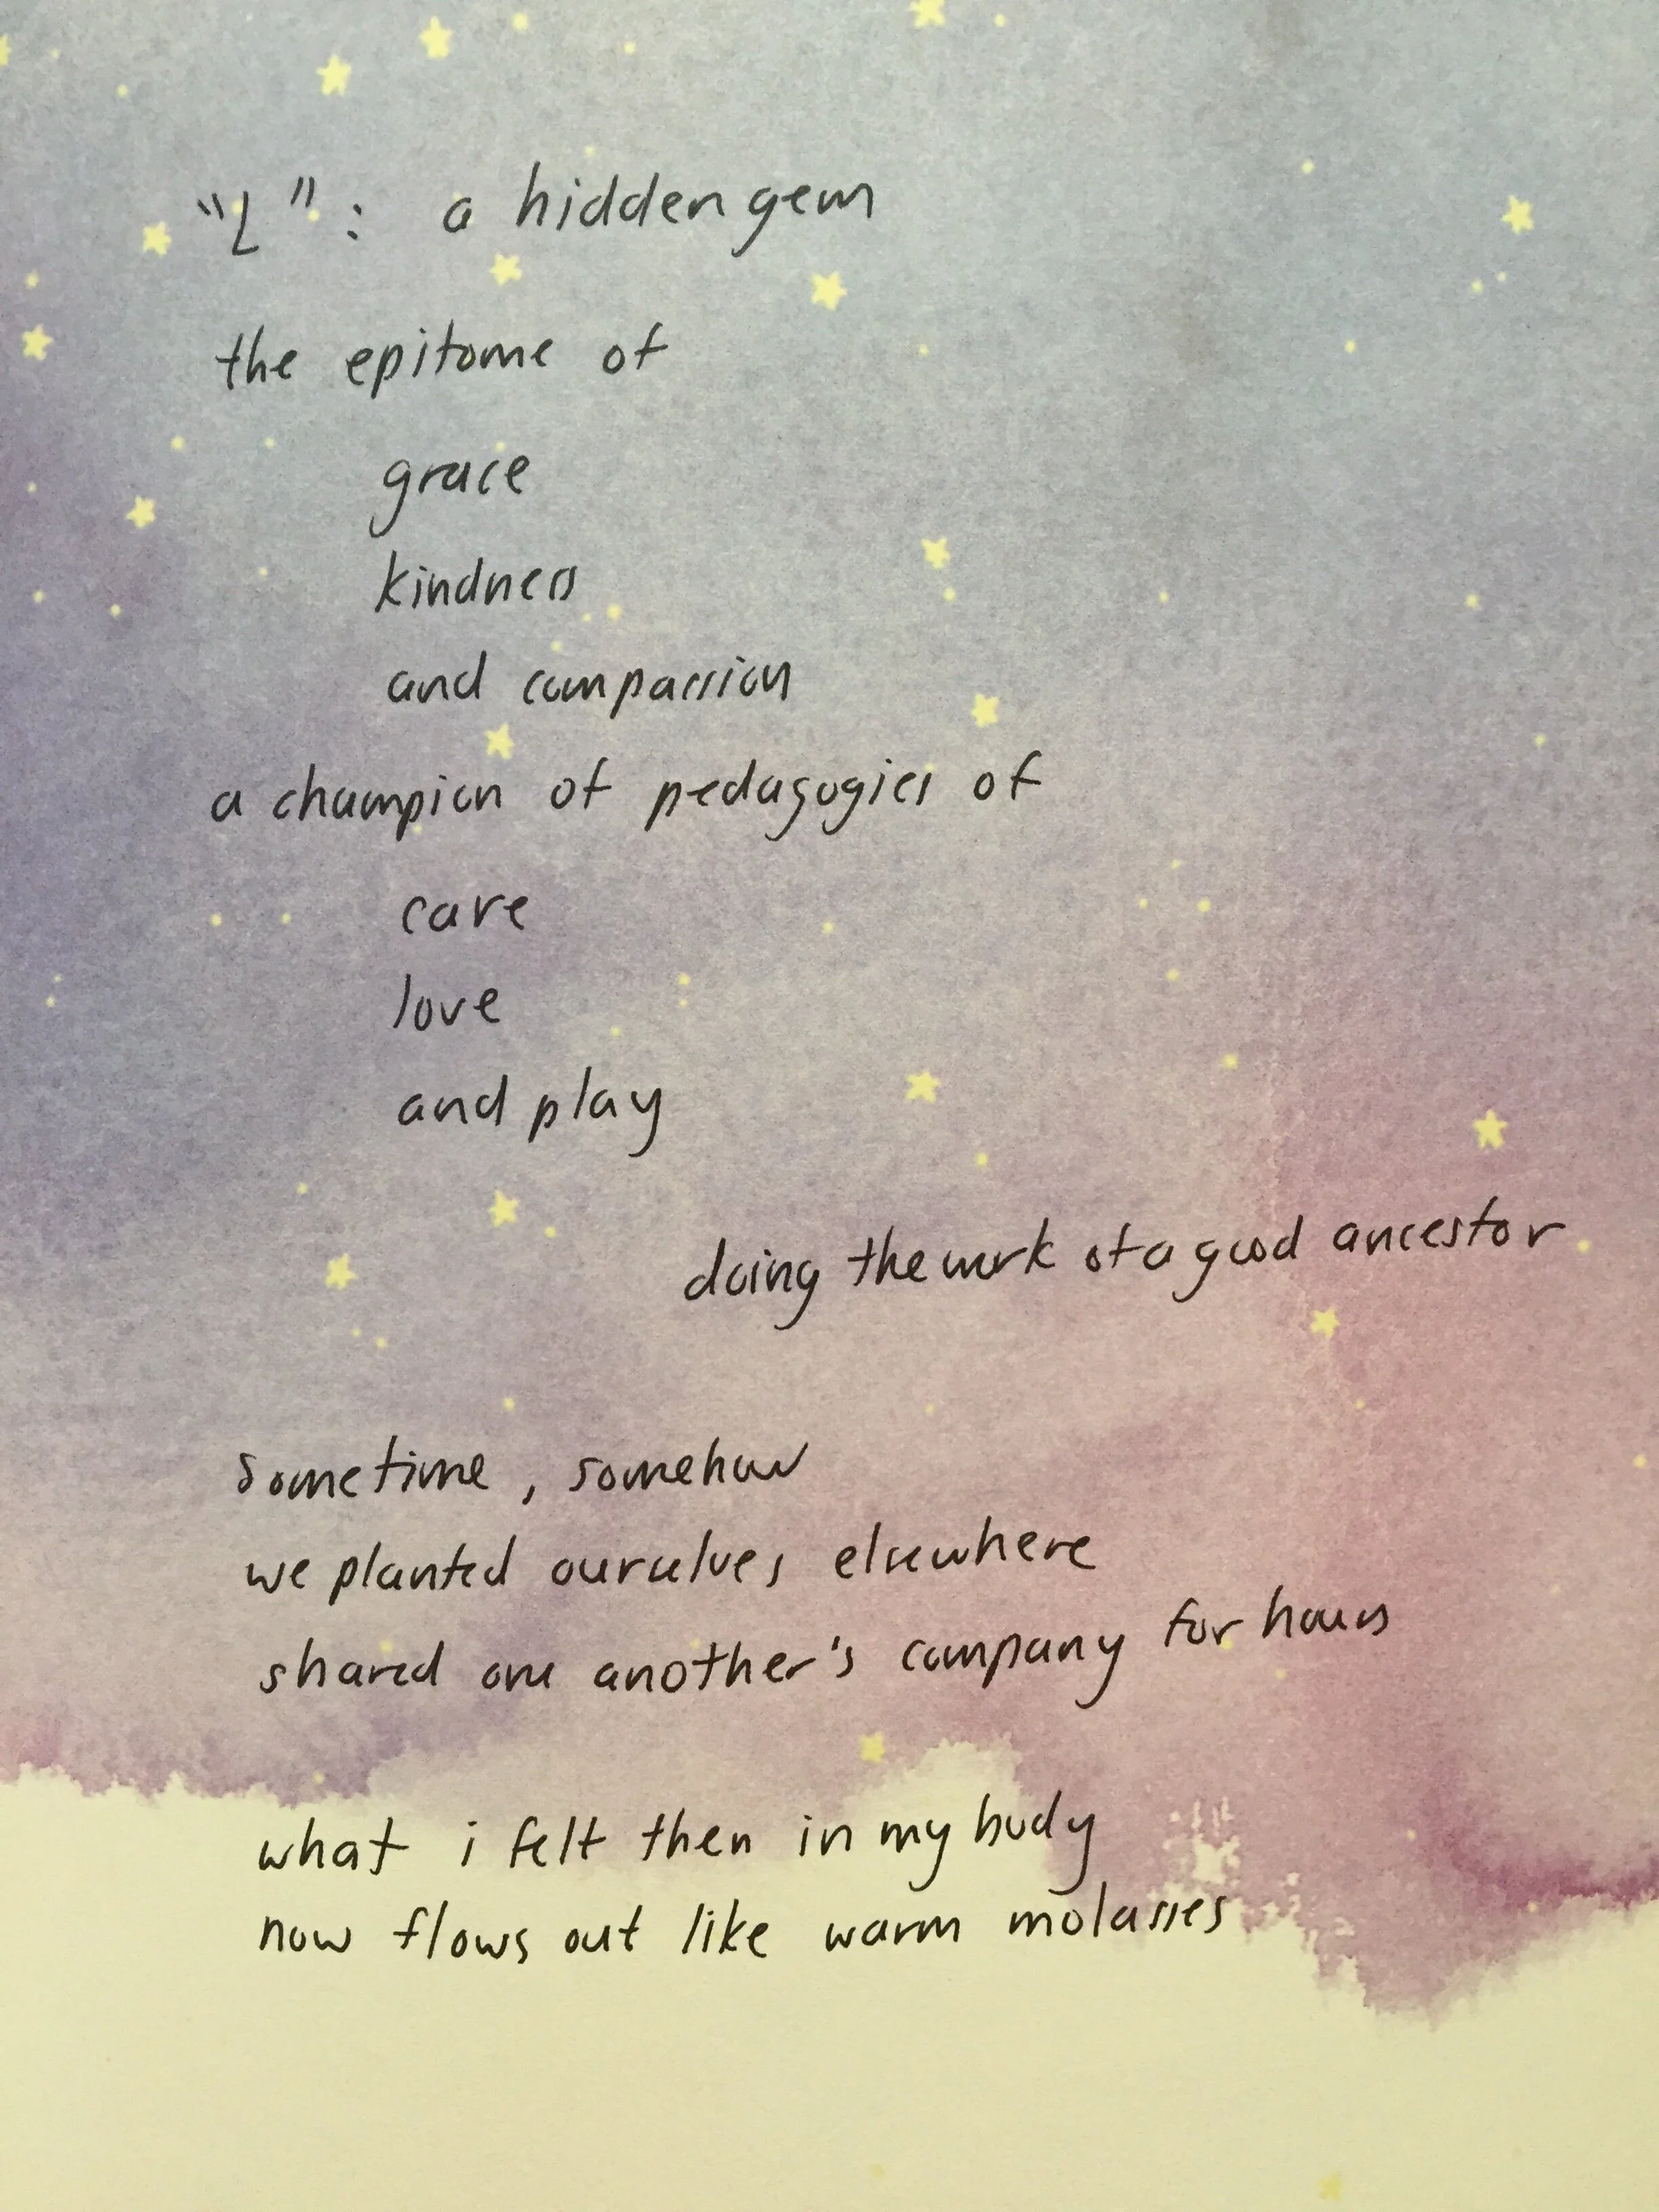 "L": a hidden gem
the epitome of
grace
kindness
and compassion
a champion of pedagogies of
care
love
and play
doing the work of a good ancestor
sometime, somehow
we planted ourselves elsewhere
shared one another's company for hours
what i felt then in my body
now flows out like warm molasses